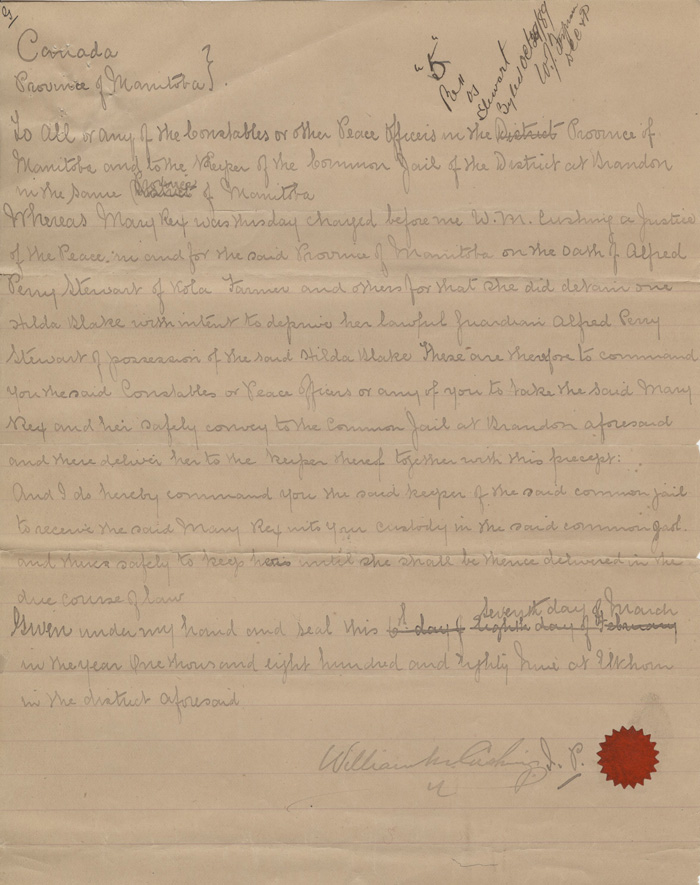 9/
"5"
Rex
vs
Stewart
Canada }
Province of Manitoba } .
To All or any of the Constables or other Peace Officers in the District Province of
Manitoba and to the Keeper of the Common Jail of the District at Brandon
in the same Province of Manitoba
Whereas Mary Rex was this day charged before me W. M. Cushing a Justice
of the Peace in and for the said Province of Manitoba on the oath of Alfred
Perry Stewart of Kola Farmer and others for that she did detain one
Hilda Blake with intent to deprive her lawful guardian Alfred Perry
Stewart of possession of the said Hilda Blake These are therefore to command
you the said Constables or Peace Officers or any of you to take the said Mary
Rex and her safely convey to the Common Jail at Brandon aforesaid
and there deliver her to the keeper thereof together with this precept:
And I do hereby command you the said keeper of the said common jail
to receive the said Mary Rex into your custody in the said common jail.
and there safely to keep her until she shall be thence delivered in the
due course of law
Seventh day of March
Given under my hand and seal this 6th day of Eighth day of February
in the year One thousand eight hundred and Eighty Nine at Elkhorn
in the district aforesaid
William M. Cushing J. P.